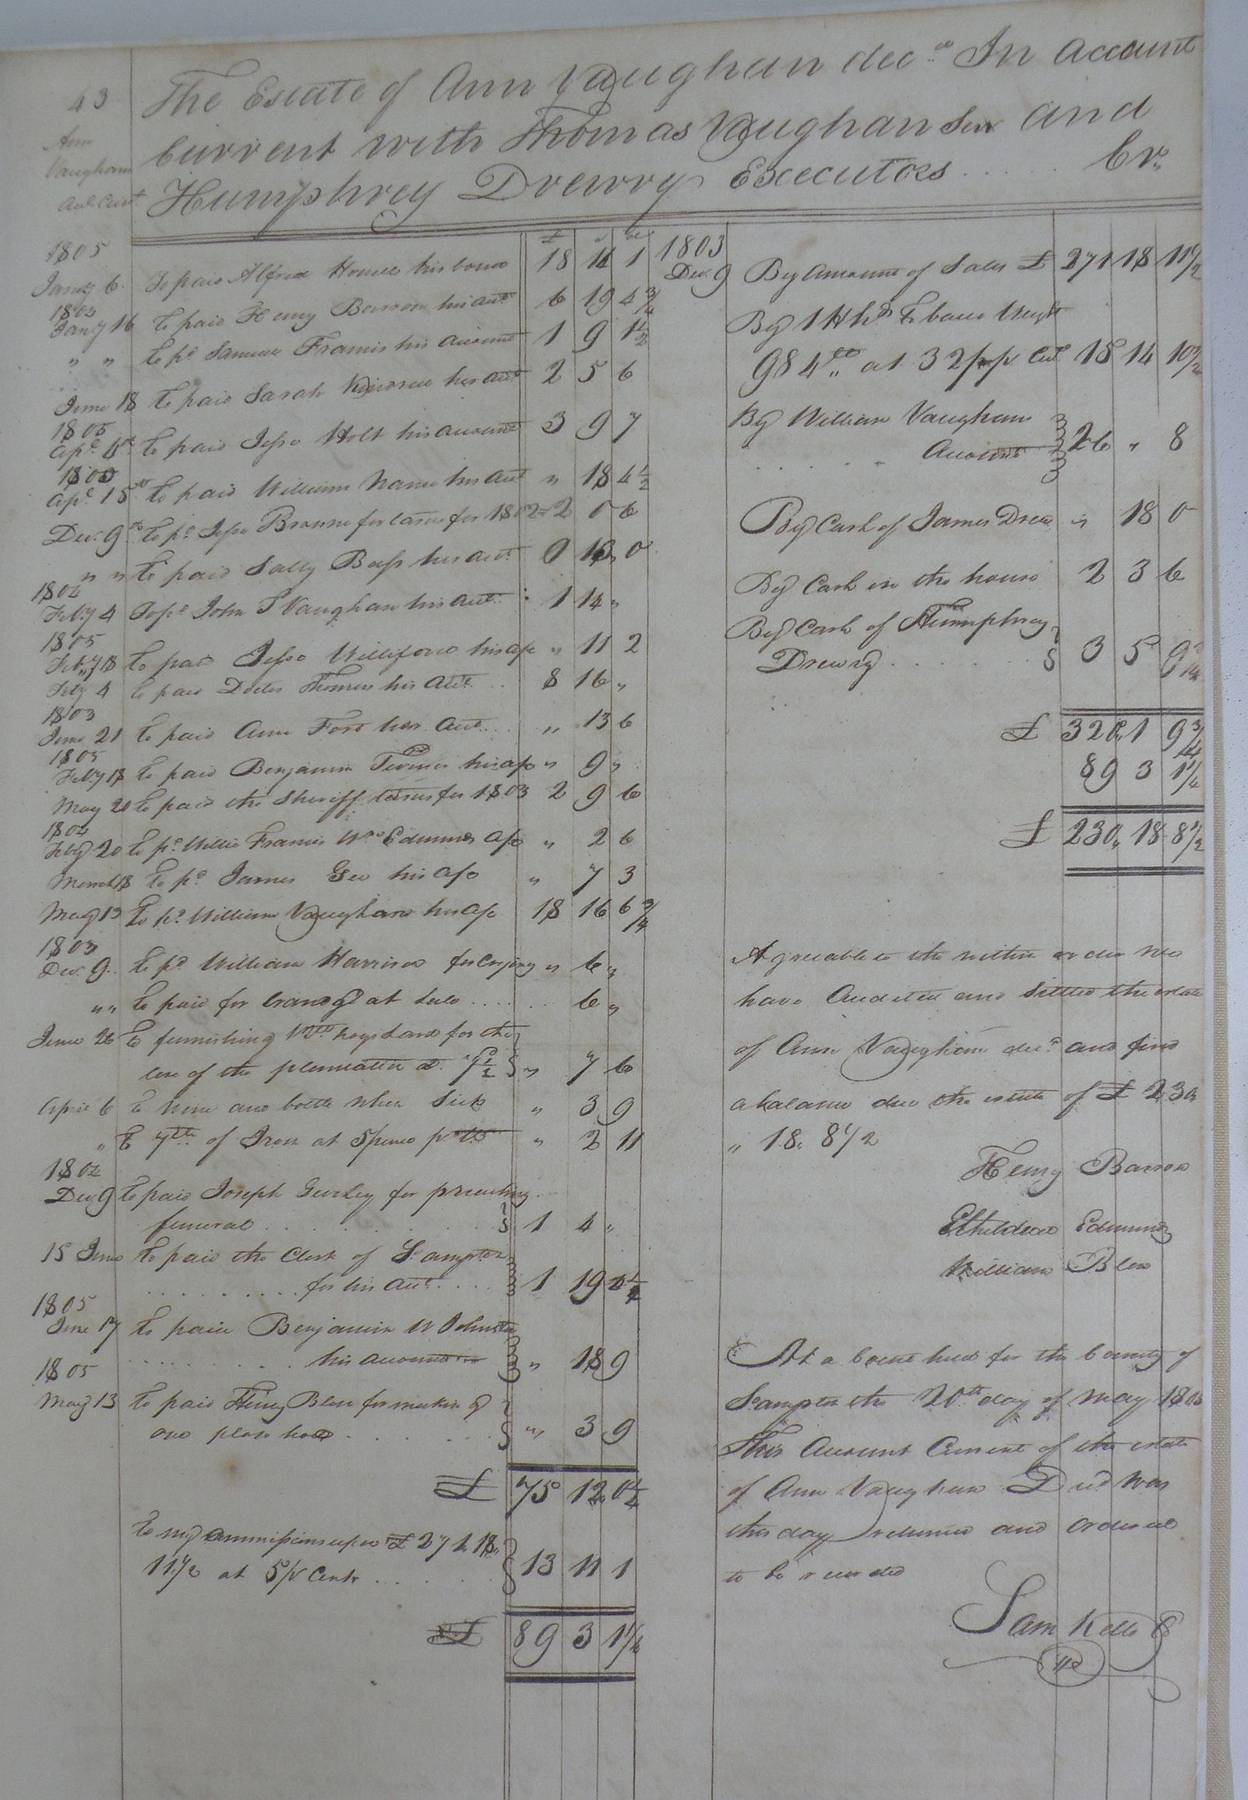 43
Ann
Vaughan
The Estate of Ann Vaughan dec.d In account
Current with Thomas Vaughan Sen and
Humphrey Drewry Executors ..... Cr.
1805
Jany 6. To paid Alfred Howell his bond 18 14 1
1803
Jany 16 to paid Henry Barrow his act 6 19 4 3/4
" " to pd Samuel Francis his account 1 9 1 1/2
June 18 to paid Sarah his act 2 5 6
1805
to paid Jesse Holt his account 3 9 7
Apl 15th to paid William his act " 18 4 1/2
Dec. 9th to pd Jesse Browne for 1802 2 0 6
" " to paid Sally Bass his act 0 0
1804
Feby 4 To pd John T Vaughan his act. 1 14 "
1805
Feby 18 to paid Jesse Williford his a/c " 11 2
Feby 4 to paid Doctor Thomas his act. .. 8 16 "
1803
June 21 to paid Ann Fort her act. ... " 13 6
1805
Feby 18 to paid Benjamin his a/c " 9 "
May 20 to paid the Sheriff for 1803 2 9 6
1804
Feby 20 to pd Willie Francis Wm Edmunds a/c " 2 6
March 18 to pd James Gee his a/c " 7 3
May 13 To pd William Vaughans his a/c 18 16 6 3/4
1803
Dec. 9. to pd William Harrison for Crying " 6 "
" " to paid for brandy at Sale .... .. 6 "
June 26 To furnishing hogs Lard for the
use of the plantation " 7 6
April 6 to wine and bottle when Sick " 3 9
" To 7lb of Iron at 5pence pr lb " 2 11
1802
Dec 9 to paid Joseph Gurley for preaching
funeral ........... 1 4 "
15 June to paid the Clerk of Sampton
......... for his act. .... 1 19
1805
June 17 to paid Benjamin W Johnston
......... his account " 18 9
1805
May 13 to paid Henry Blow for making of
one plow hoe ....... " 3 9
£ 75 12 0 1/4
to my commissions upon £ 271. 18.
11 1/2 at 5 pr Cent ...... 13 11 1
£ 89 3 1 1/4
1803
Dec. 9 By Amount of Sales £ 271 18 11 1/2
By 1 Hhd Tobacco Weight
984lb at 32/ pr Cwt 15 14 10 1/2
By William Vaughan
...... Account 26 " 8
By Cash of James Drew " 18 0
By Cash in the house 2 3 6
By Cash of Humphrey
Drewry ........ 3 5 9 3/4
£ 320 " 1 9 3/4
89 3 1 1/4
£ 230 " 18 8 1/2
Agreeable to the within order we
have Audited and Settled the estate
of Ann Vaughan decd and find
a balance due the estate of £ 230
" 18. 8 1/2
Henry Barrow
Etheldred Edmunds
William Blow
At a Court held for the County of
Sampton the 20th day of May 180
This Account Current of the estate
of Ann Vaughan Decd was
this day returned and ordered
to be recorded
Sam Kello C